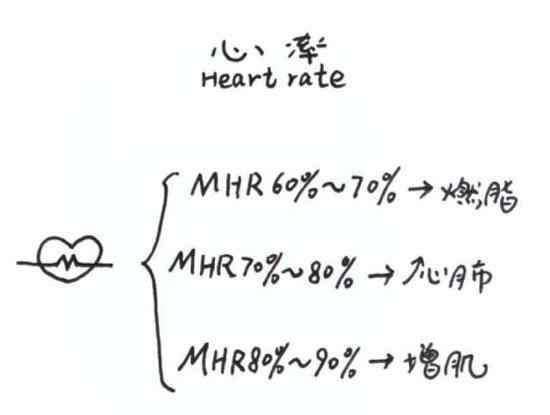 心率
Heart rate
MHR 60%~70% → 燃脂
MHR 70%~80% → 心肺
MHR 80%~90% → 增肌